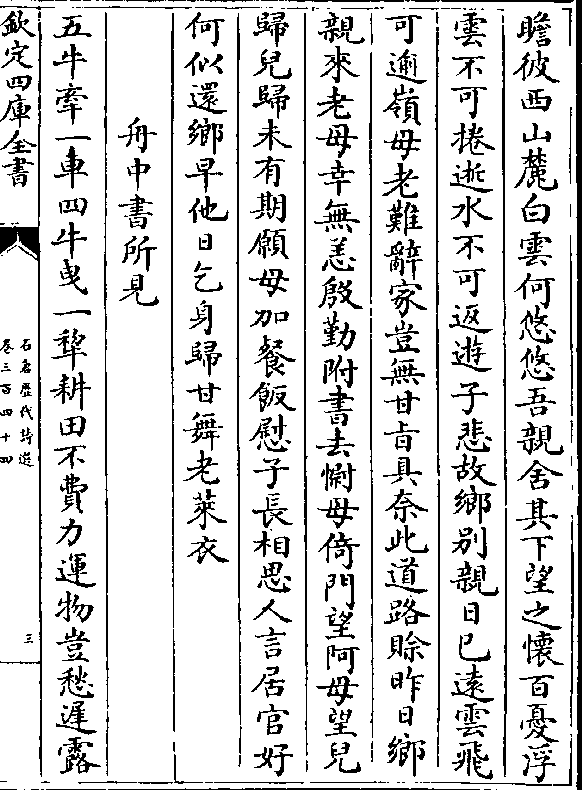 瞻彼西山麓白雲何悠悠吾親舍其下望之懷百憂浮
雲不可捲逝水不可返遊子悲故鄉別親日已遠雲飛
可逾嶺母老難辭家豈無甘旨具奈此道路賖昨日鄉
親來老母幸無恙殷勤附書去慰母倚門望阿母望兒
歸兒歸未有期願母加餐飯慰子長相思人言居官好
何似還鄉早他日乞身歸甘舞老萊衣
舟中書所見
五牛牽一車四牛曳一犂耕田不費力運物豈愁遲露
欽定四庫全書
石倉歷代詩選
卷三百四十四
三